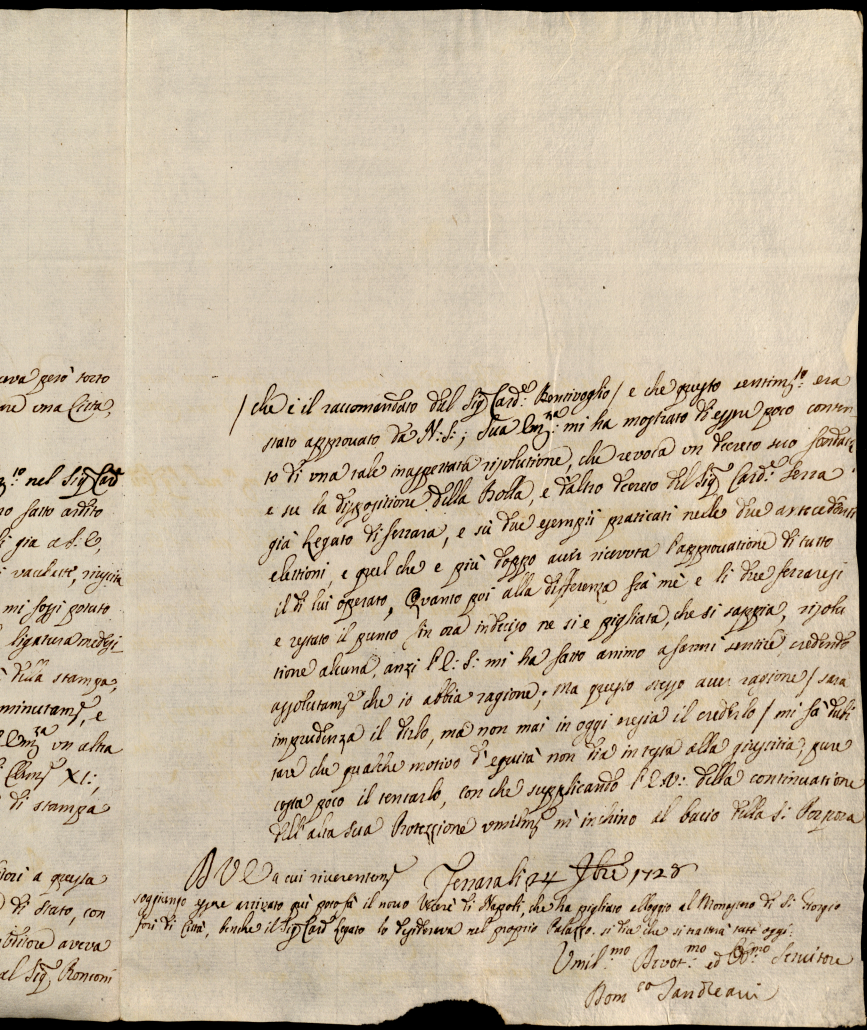 uva però torto
una Città,
nel Sig.r Card
no fatto ardito
già
vacchetti,
mi fossi potuto
ligatura
stampa,
minutam.e, e
vn altra
Clem.e XI:,
di stampa
a questa
di Stato, con
aveva
al Sig.r Ronconi
/ che è il raccomandato dal Sig.r Card.e Bentivoglio / e che questo sentim.to era
stato approvato da N: S:; Sua Em.za mi ha mostrato di essere poco conten-
to di vna tale inaspettata risolutione, che revoca vn decreto suo fondato
e su la dispositione della Bolla, e d'altro decreto del Sig.r Card.e Serra
già Legato di Ferrara, e sù due esempii praticati nelle due antecedenti
elettioni, e quel che e più doppo aver ricevuta l'approvatione di tutto
il di lui operato, Quanto poi alla differenza frà mè e li due ferraresi
e restato il punto fin ora indeciso ne si e pigliata, che si sappia, risolu
tione alcuna, anzi l'E: S: mi ha fatto animo a farmi sentire credendo
assolutam.e che io abbia ragione; ma questo stesso aver ragione / sarà
imprudenza il dirlo, mà non mai in oggi eresia il crederlo / mi fà dubi
tare che qualche motivo d'equità non dia in testa alla giustitia, pure
costa poco il tentarlo, con che supplicando l'E. V: della continuatione
dell'alta sua Protezzione vmilm.e m'inchino al bacio della S: Porpora
D V E a cui riverentem.e Ferrara li 24 Xbre 1728
soggiungo essere arrivato quì poco fà il novo Vicerè di Napoli, che ha pigliato alloggio al Monastero di S: Giorgio
fori di Città, benche il Sig.r Card.e Legato lo desiderava nel proprio Palazzo. si dia che si tratterà tutt'oggi:
Vmil.mo Devot.mo ed Obl.mo Servitore
Dom.co